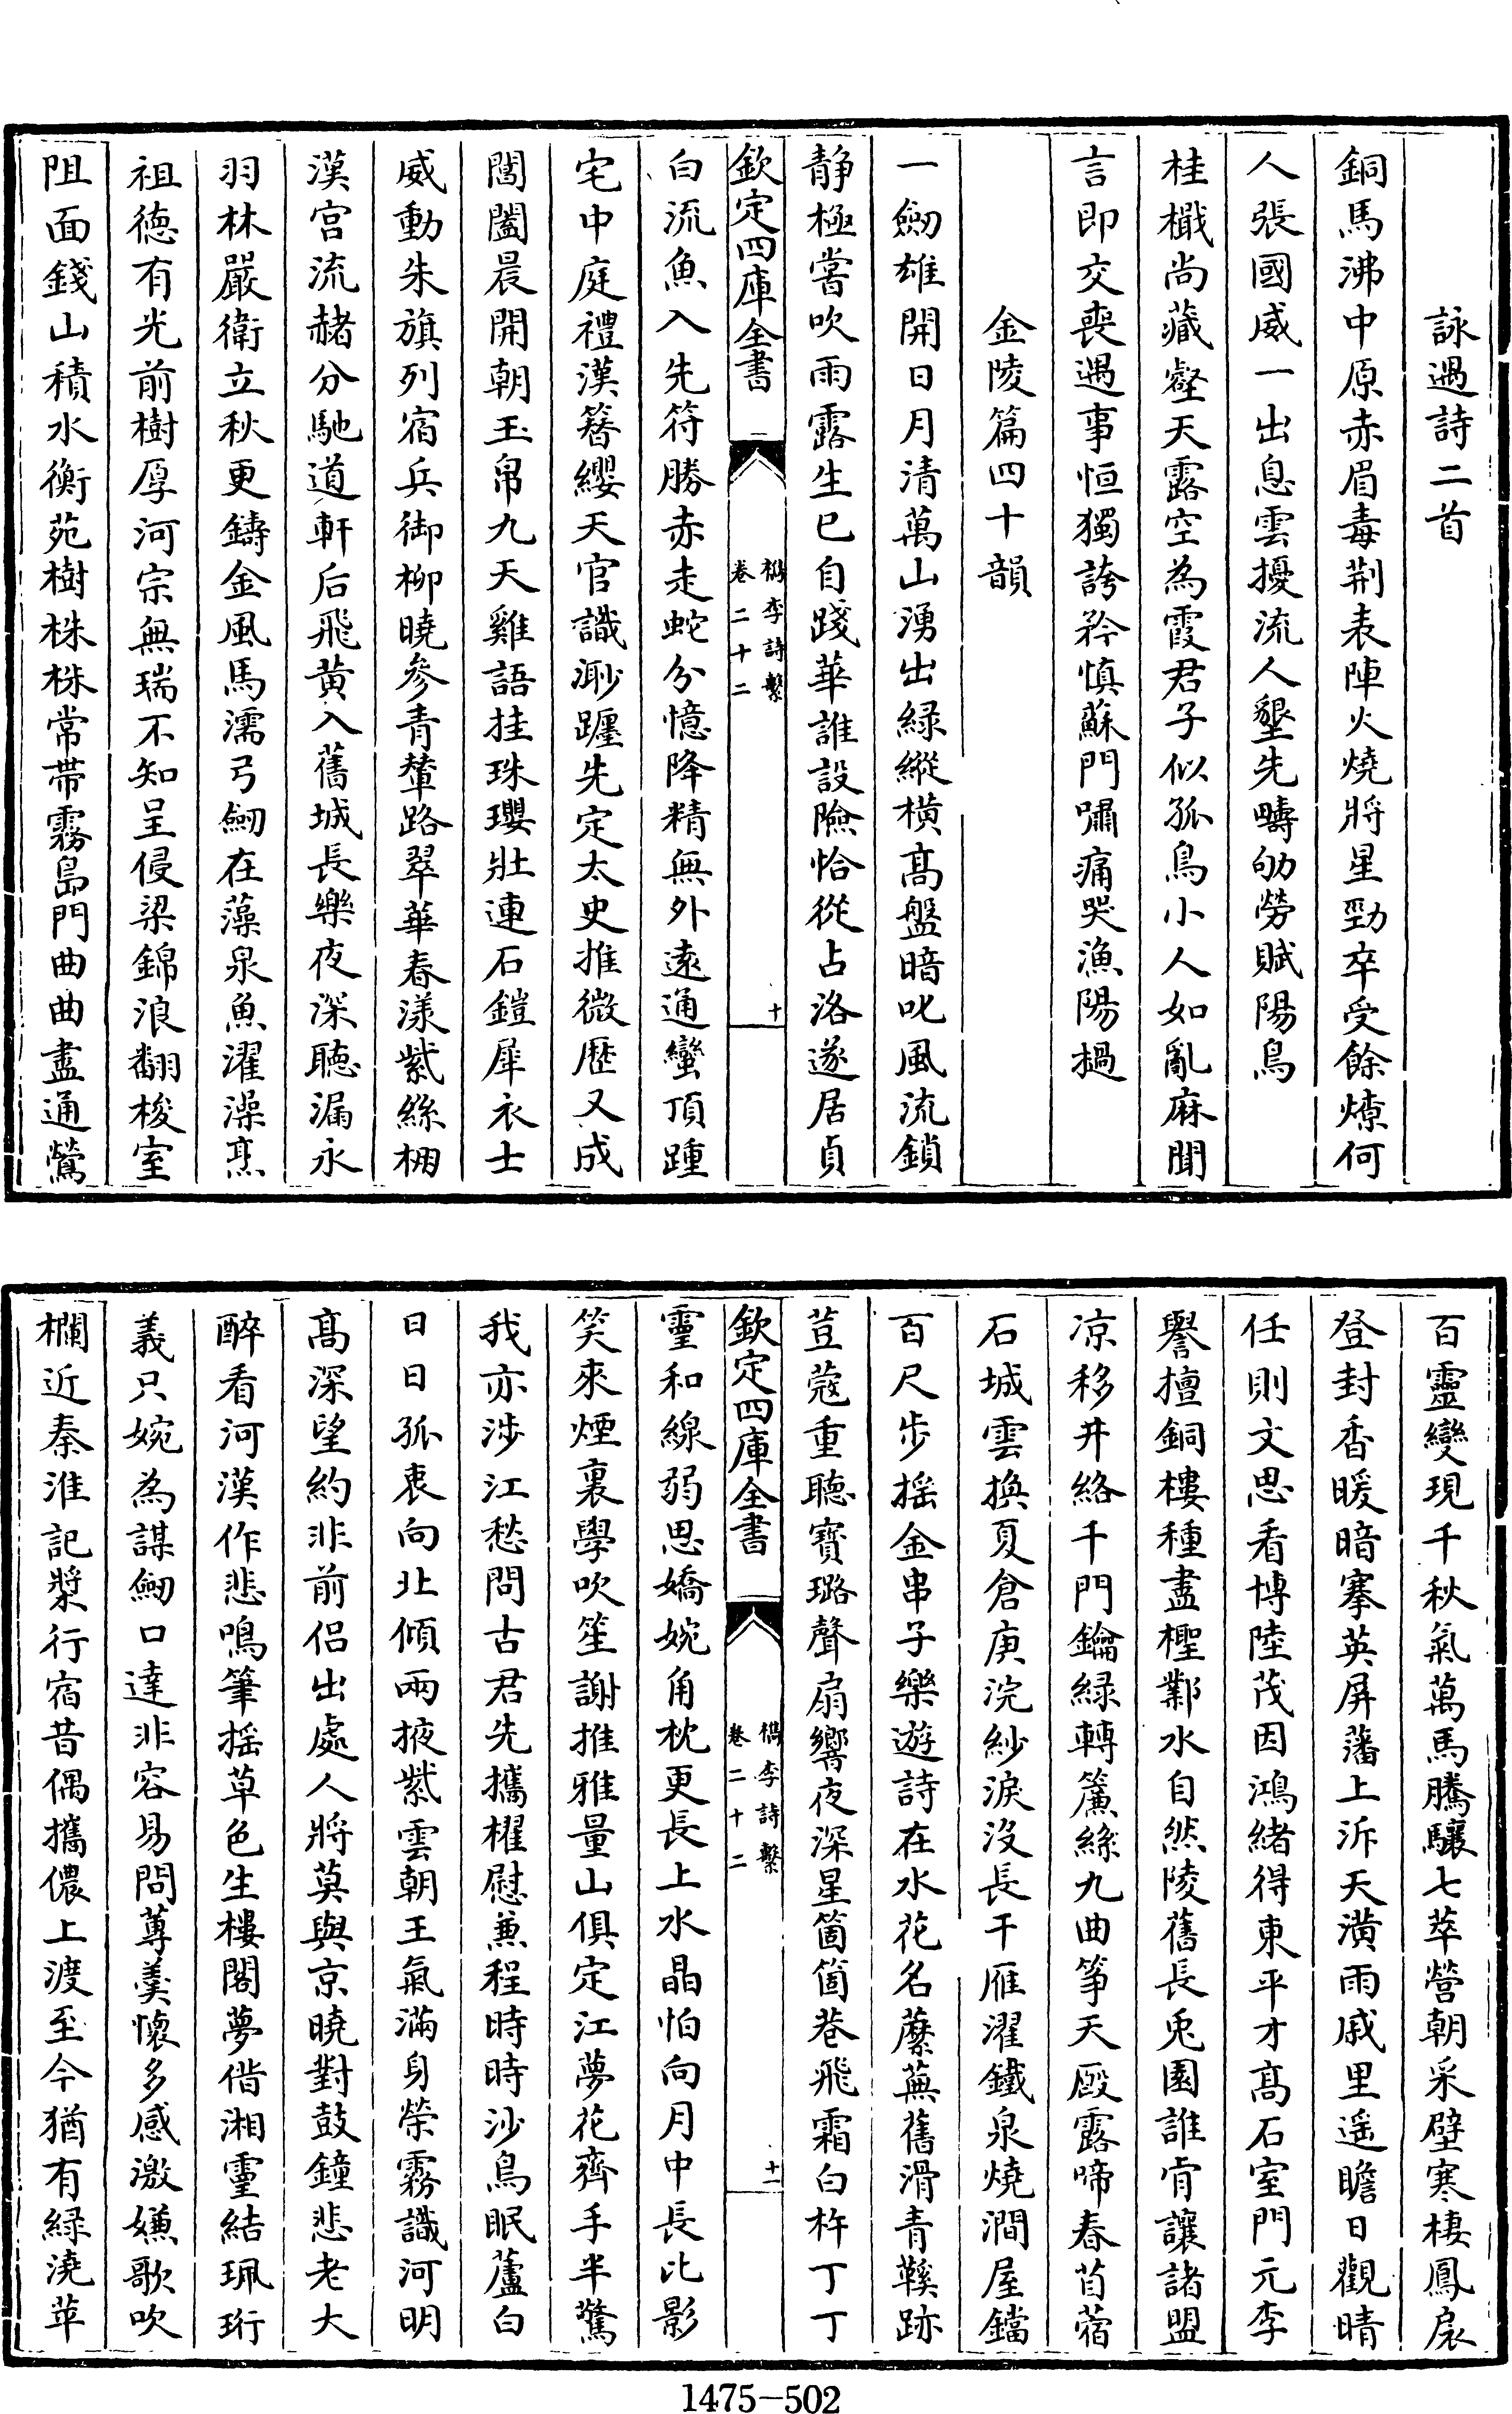 詠遇詩二首
銅馬沸中原赤眉毒荆表陣火燒將星勁卒受餘燎何
人張國威一出息雲擾流人墾先疇劬勞賦陽鳥
桂檝尚藏壑天露空為霞君子似孤鳥小人如亂麻聞
言即交喪遇事恒獨誇矜慎蘇門嘯痛哭漁陽撾
金陵篇四十韻
一劒雄開日月清萬山湧出緑縱橫髙盤暗叱風流鎖
静極嘗吹雨露生已自踐華誰設險恰從占洛遂居貞
欽定四庫全書
檇李詩繫
卷二十二
十
白流魚入先符勝赤走蛇分憶降精無外遠通蠻頂踵
宅中庭禮漢簪纓天官識渺躔先定太史推微歴又成
閶闔晨開朝玉帛九天雞語挂珠瓔壯連石鎧犀衣士
威動朱旗列宿兵御柳曉參青輦路翠華春漾紫絲棚
漢宫流赭分馳道軒后飛黄入舊城長樂夜深聽漏永
羽林嚴衛立秋更鑄金風馬濡弓劒在藻泉魚濯澡烹
祖徳有光前樹厚河宗無瑞不知呈侵梁錦浪翻梭室
阻面錢山積水衡苑樹株株常帶霧島門曲曲盡通鶯
百靈變現千秋氣萬馬騰驤七萃營朝采壁寒棲鳳扆
登封香暖暗搴英屏藩上泝天潢雨戚里遥瞻日觀晴
任則文思看博陸茂因鴻緒得東平才髙石室門元李
譽擅銅樓種盡檉鄴水自然陵舊長兎園誰肯讓諸盟
凉移井絡千門鑰緑轉簾絲九曲筝天廐露啼春苜蓿
石城雲換夏倉庚浣紗淚沒長干雁濯鐵泉燒澗屋鐺
百尺步揺金串子樂遊詩在水花名蘼蕪舊滑青鞵跡
荳蔻重聽寳璐聲扇響夜深星箇箇巷飛霜白杵丁丁
欽定四庫全書
檇李詩繫
卷二十二
十一
靈和線弱思嬌婉角枕更長上水晶怕向月中長比影
笑來煙裏學吹笙謝推雅量山俱定江夢花齊手半驚
我亦涉江愁問古君先攜櫂慰兼程時時沙鳥眠蘆白
日日孤衷向北傾兩掖紫雲朝王氣滿身榮霧識河明
髙深望約非前侣出處人將莫與京曉對鼓鐘悲老大
醉看河漢作悲鳴筆揺草色生樓閣夢偕湘靈結珮珩
義只婉為謀劒口達非容易問蓴羮懷多感激嫌歌吹
欄近秦淮記槳行宿昔偶攜儂上渡至今猶有緑澆苹
1475-502